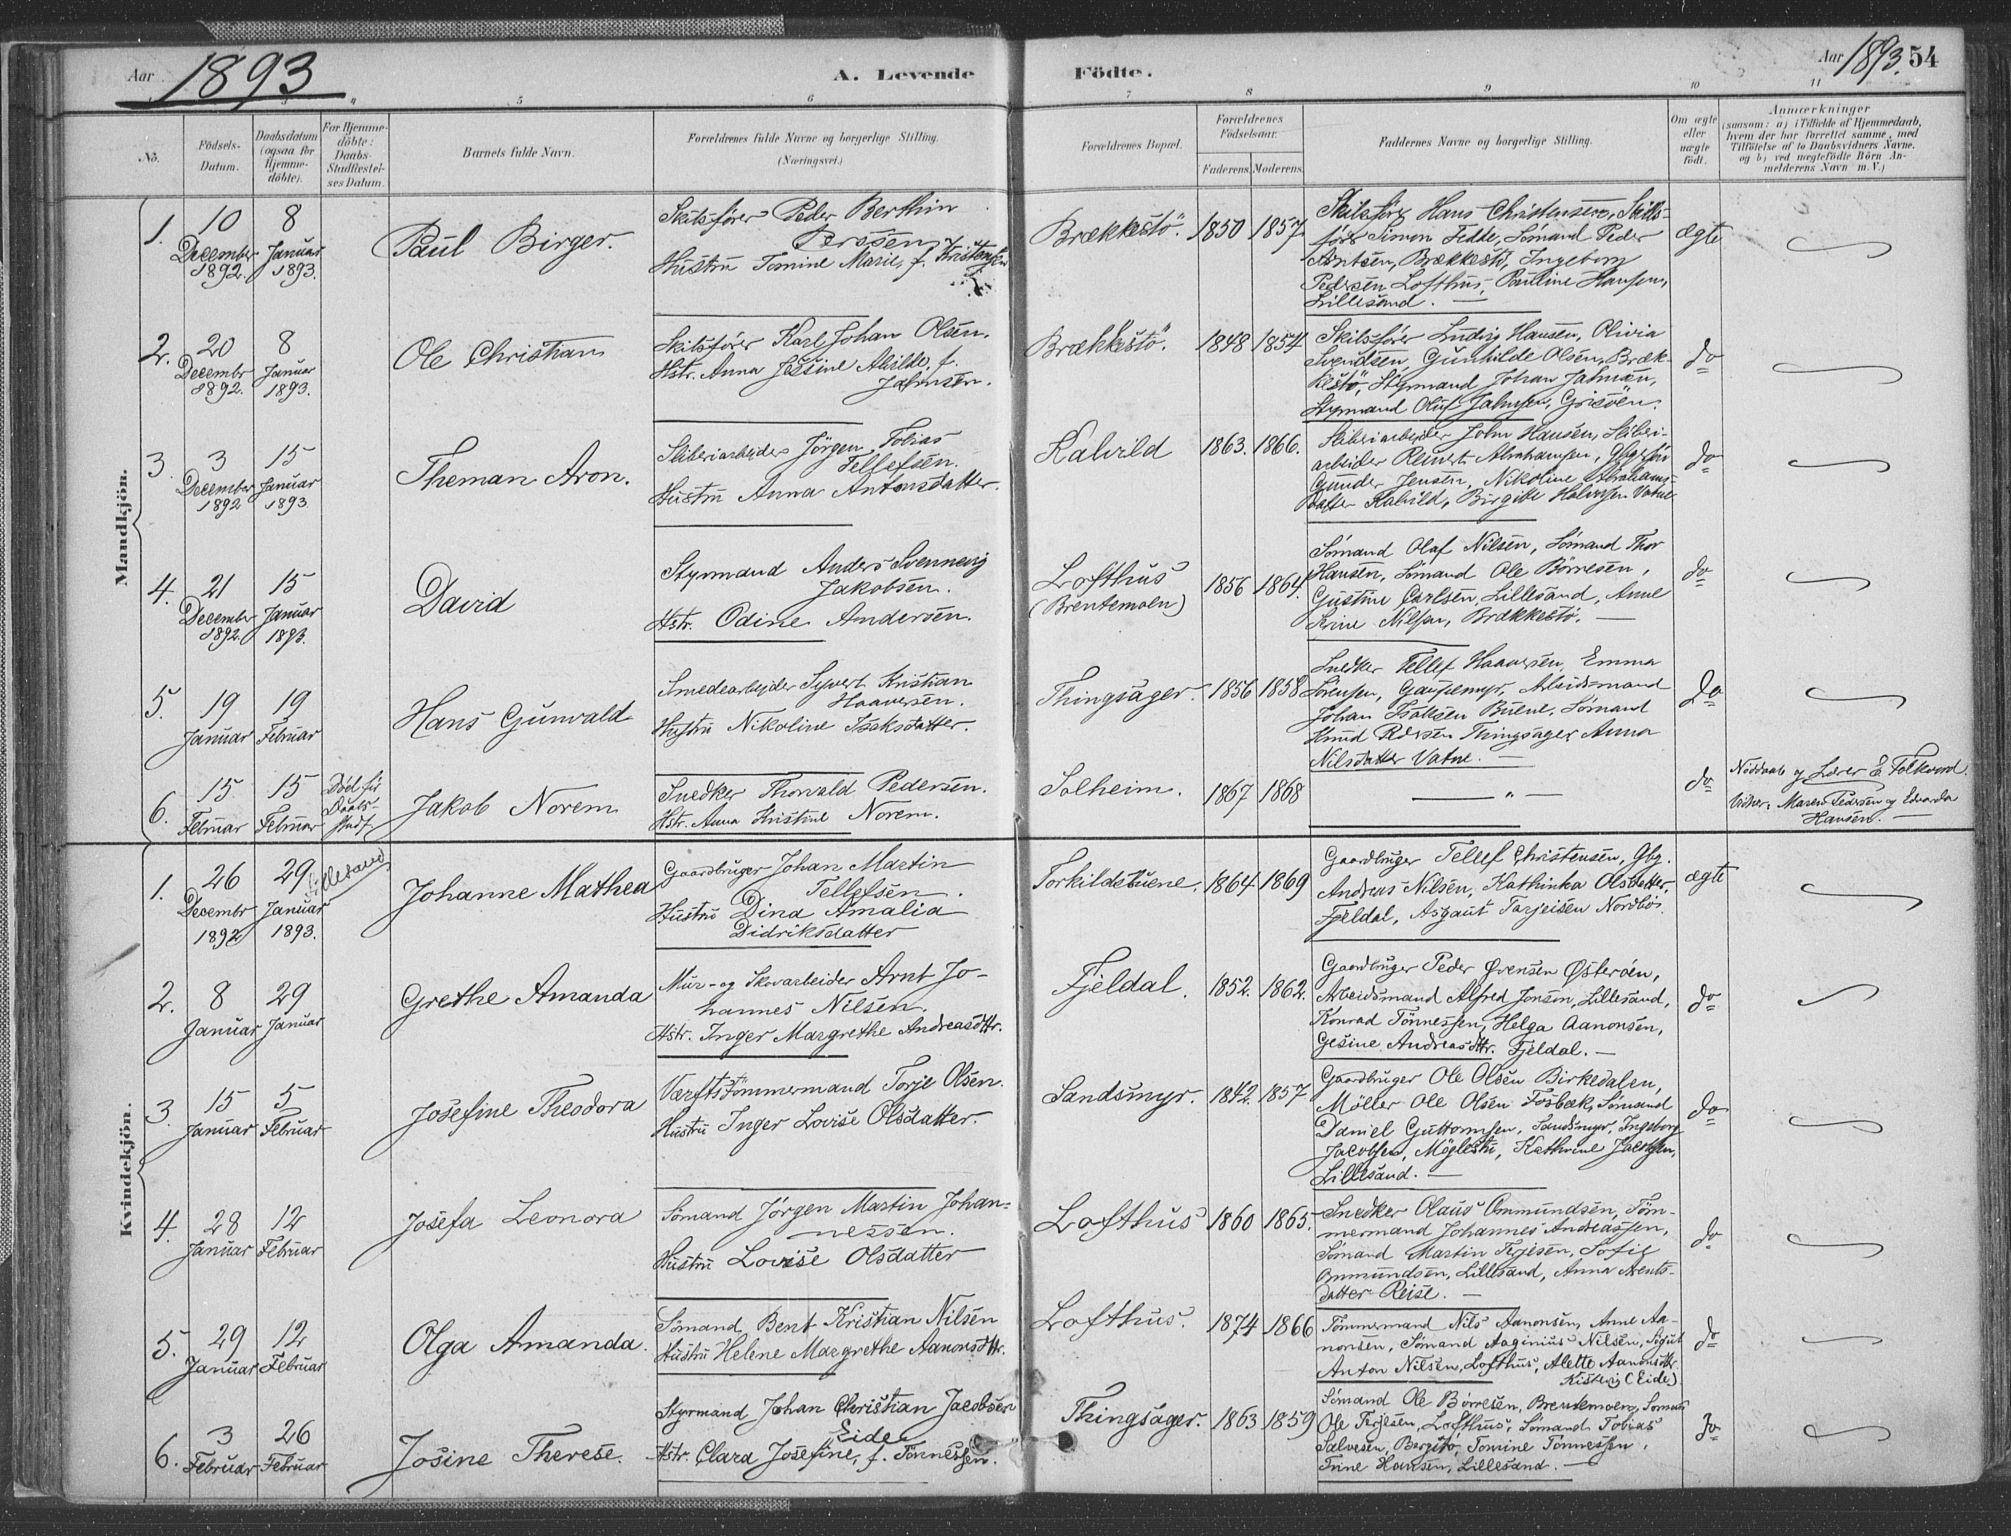 Aar 1893 A. Levende Födte. Aar 1893. 54
3 4 5 6 7 8 9 10 11
No. Födsels-Datum. Daabsdatum (ogsaa for Hjemmedöbte). For Hjemmedöbte: Daabs-Stadfæstelses Datum. Barnets fulde Navn. Forældrenes fulde Navne og borgerlige Stilling. (Næringsvei.) Forældrenes Bopæl. Forældrenes Födselsaar. Faderens. Moderens. Faddernes Navne og borgerlige Stilling. Om ægte eller uægte födt. Anmærkninger (saasom: a) i Tilfælde af Hjemmedaab, hvem der har forrettet samme, med Tilföielse af to Daabsvidners Navne. og b) ved uægtefödte Börn Anmelderens Navn m. V.)
Mandkjön.
1. 10 December 1892. 8 Januar 1893. Paul Birger. Skibsfører Peder Berthin Perssen, Hustru Tomine Marie, f. Kristensen Brækkestö. 1850 1857. Skibsfører Hans Christensen, Skibsfører Simon Fedde, Sömand Peder Berntsen, Brækkestö, Ingeborg Pedersen Lofthus, Pauline Hansen, Lillesand. — ægte
2. 20 Decembr 1892. 8 Januar 1893. Ole Christian Skibsfører Karl Johan Olsen. Hstr. Anna Jessine Alvilde, f. Jahnsen. Brækkestö. 1848 1854 Skibsfører Ludvig Hansen, Olivia Svendsen, Gunhilde Olsen, Brækkestö, Styrmand Johan Jahnsen, Styrmand Oluf Jahnsen, Grisöen. do
3. 3 December 1892 15 Januar 1893. Theman Aron. Sliberiarbeider Jörgen Tobias Tellefsen. Hustru Anna Antonsdatter. Kalvild 1863. 1866. Sliberiarbeider John Hansen, Sliberiarbeider Reinert Abrahamsen, Gbgr. for Gunder Jensen, Nikoline Abrahamsdatter Kalvild, Birgitte Halvorsen Vatne do
4. 21 December 1892. 15 Januar 1893. David Styrmand Anders Svennevig Jakobsen. Hstr. Odine Andersen. Lofthus (Brentemoen) 1856 1864. Sömand Olaf Nilsen, Sömand Thor Hansen, Sömand Ole Börresen, Gustine Carlsen, Lillesand, Anne Trine Nilsen, Brækkestö. — do
5. 19 Januar 19 Februar Hans Gunvald Smedearbejder Syvert Kristian Haaversen. Hustru Nikoline Isaksdatter. Thingsager. 1856 1858 Snedker Tellef Haaversen, Emma Sörensen, Gaupemyr, Arbeidsmand Johan Isaksen Buene, Sömand Knud Pedersen Thingsager, Anna Nilsdatter Vatne. — do
6. 15 Februar 15 Februar Död før Daabs-stadf. Jakob Norem Snedker Thorvald Pedersen. Hstr. Anna Kristine Norem. Solheim. 1867 1868 — „ — do Nöddaab af Lærer E. Folkvord. Vidner: Maren Pedersen og Edvarda Hansen. —
Kvindekjön.
1. 26 Decembr 1892 29 Januar 1893. Lillesand Johanne Mathea Gaardbruger Johan Martin Tellefsen. Hustru Dina Amalia Didriksdatter Torkildsbuene. 1864 1869 Gaardbruger Tellef Christensen, Gbg. Andreas Nilsen, Kathinka Olsdatter, Fjeldal, Asgaut Tarjeisen Nordbö. ægte
2. 8 Januar 29 Januar Grethe Amanda Mur- og Skovarbeider Arnt Johannes Nilsen. Hstr. Inger Margrethe Andreasdttr. Fjeldal. 1852. 1862. Gaardbruger Peder Örensen Österöen, Arbeidsmand Alfred Jonsen, Lillesand, Konrad Tönnessen, Helga Aanonsen, Gesine Andreasdttr. Fjeldal. — do
3. 15 Januar 5 Februar Josefine Theodora Værftstömmermand Torje Olsen. Hustru Inger Lovise Olsdatter. Sandsmyr. 1842. 1857 Gaardbruger Ole Olsen Birkedalen, Möller Ole Olsen Fosbæk, Sömand Daniel Guttormsen, Sandsmyr, Ingeborg Jacobsen, Möglestu, Kathrine Jacobsen, Lillesand. — do
4. 28 Januar 12 Februar Josefa Leonora Sömand Jörgen Martin Johannessen. Hustru Lovise Olsdatter Lofthus 1860 1865. Snedker Olaus Ommundsen, Tömmermand Johannes Andreassen, Sömand Martin Terjesen, Sofie Ommundsen, Lillesand, Anna Arentsdatter Reise. — do
5. 29 Januar 12 Februar Olga Amanda. Sömand Bent Kristian Nilsen Hustru Helene Margrethe Aanonsdttr. Lofthus. 1874 1866 Tömmermand Nils Aanonsen, Anne Aanonsen, Sömand Aaginius Nilsen, Anton Nilsen, Lofthus, Alette Aanonsdttr. (Eide) do
6. 3 Februar 26 Februar Josine Therese. Styrmand Johan Christian Jacobsen Eide Hstr. Clara Josefine, f. Tönnessen. Thingsager. 1863 1859 Sömand Ole Börresen, Brentemoen, Sömand Ole Terjesen, Lofthus, Sömand Tobias Salvesen, Tomine Tönnessen, Trine Hansen, Lillesand. — do